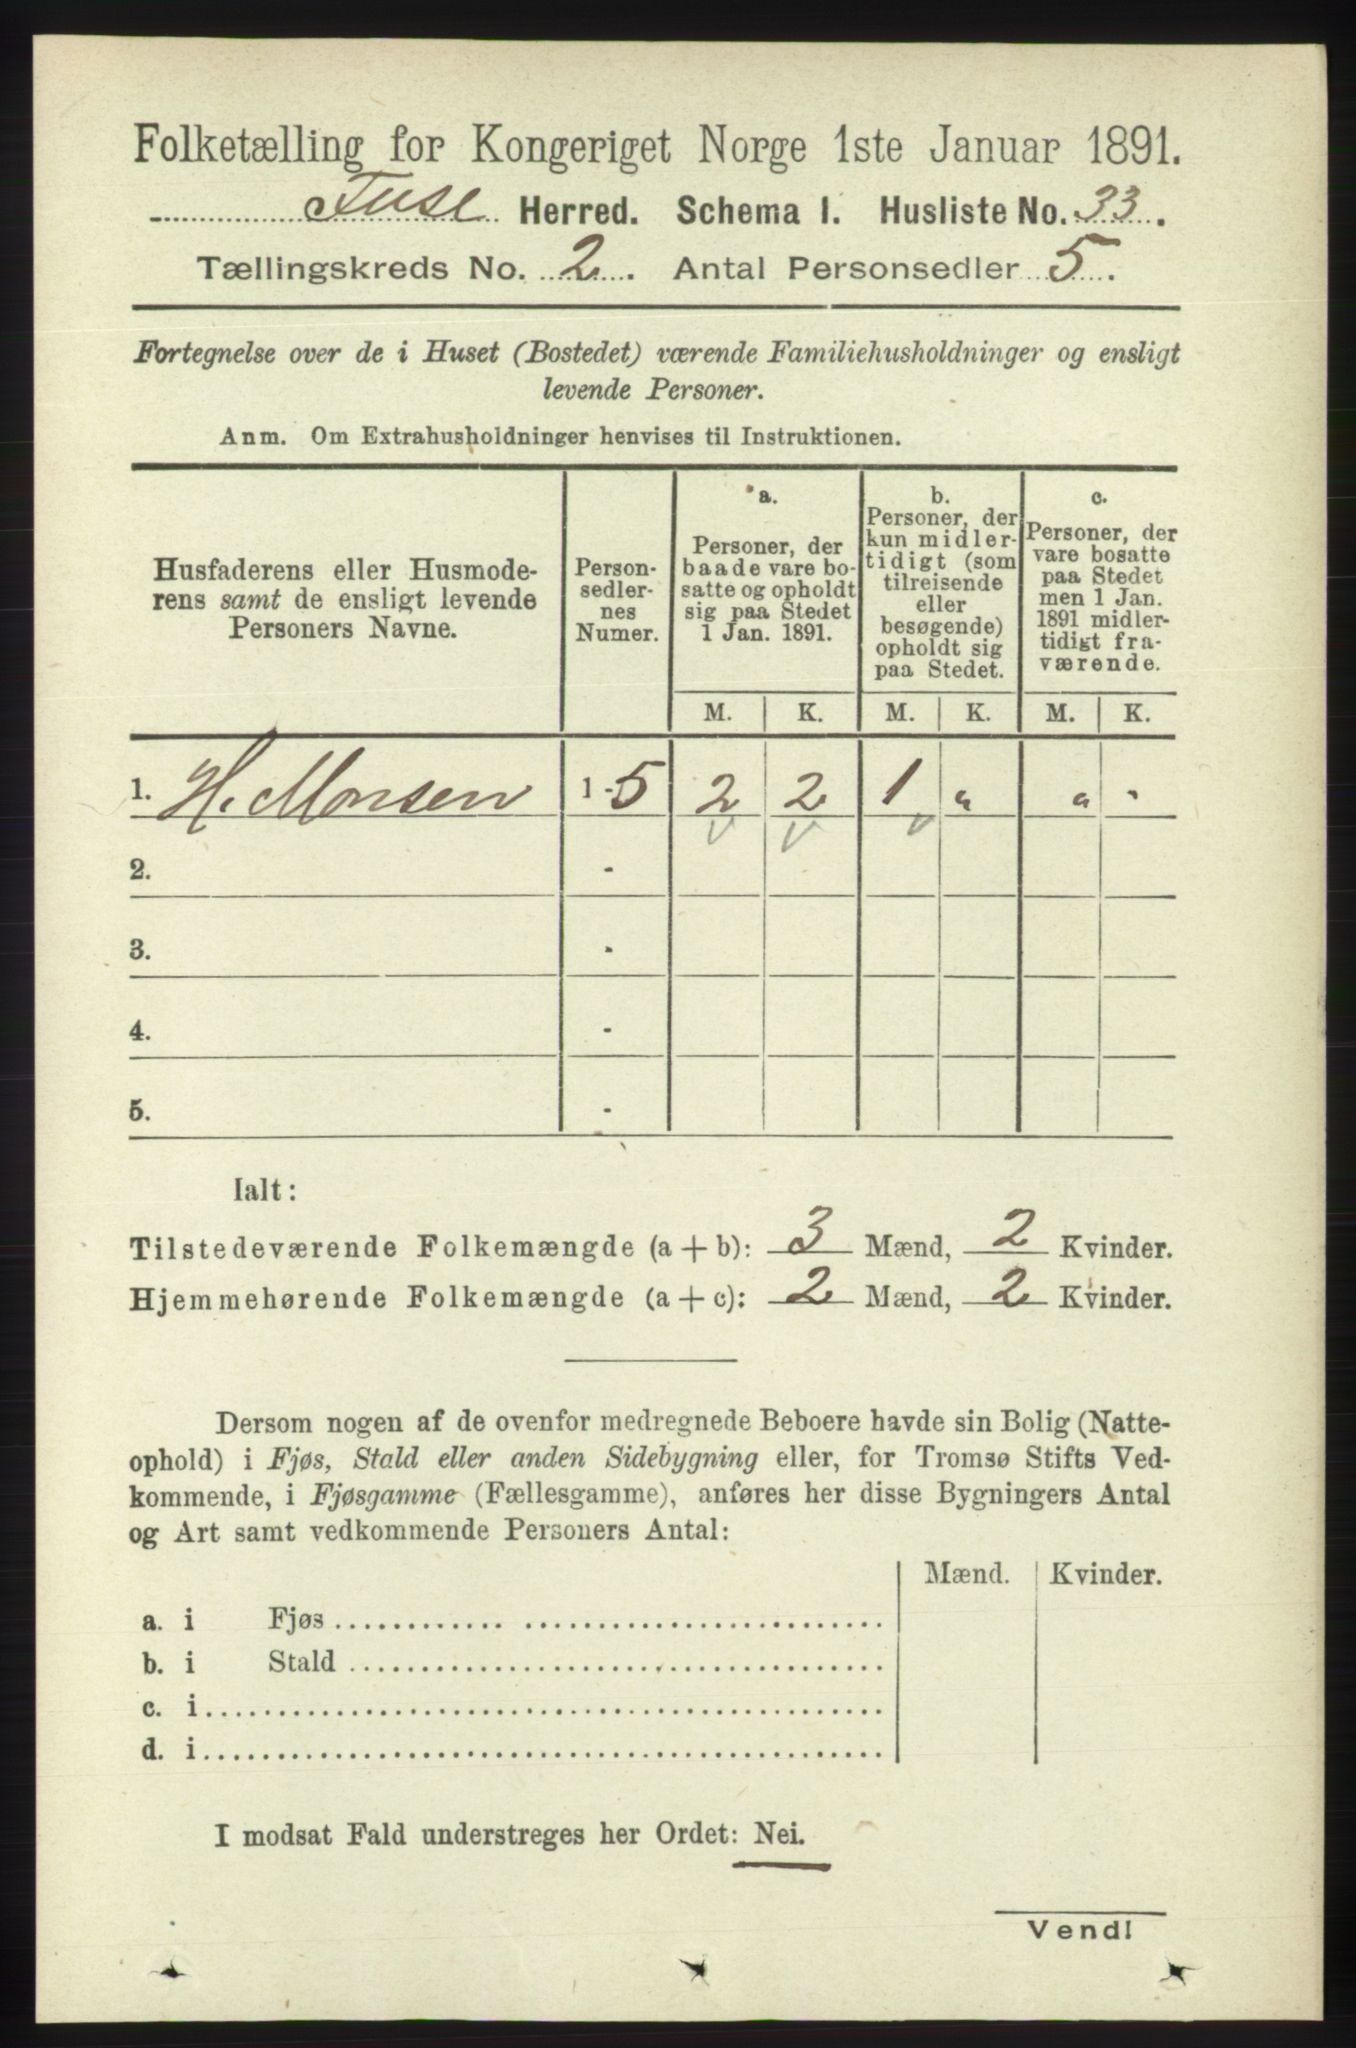 Folketælling for Kongeriget Norge 1ste Januar 1891.
Fuse Herred. Schema I. Husliste No. 33.
Tællingskreds No. 2. Antal Personsedler 5.
Fortegnelse over de i Huset (Bostedet) værende Familiehusholdninger og ensligt
levende Personer.
Anm. Om Extrahusholdninger henvises til Instruktionen.
Husfaderens eller Husmode-
rens samt de ensligt levende
Personers Navne.
Person-
sedler-
nes
Numer.
a.
Personer, der
baade vare bo-
satte og opholdt
sig paa Stedet
1 Jan. 1891.
b.
Personer, der
kun midler-
tidigt (som
tilreisende
eller
besøgende)
opholdt sig
paa Stedet.
c.
Personer, der
vare bosatte
paa Stedet
men 1 Jan.
1891 midler-
tidigt fra-
værende.
M. K. M. K. M. K.
1. H. Monsen 1-5 2 2 1 " " "
2. -
3. -
4. -
5. -
Ialt:
Tilstedeværende Folkemængde (a + b): 3 Mænd, 2 Kvinder.
Hjemmehørende Folkemængde (a + c): 2 Mænd, 2 Kvinder.
Dersom nogen af de ovenfor medregnede Beboere havde sin Bolig (Natte-
ophold) i Fjøs, Stald eller anden Sidebygning eller, for Tromsø Stifts Ved-
kommende, i Fjøsgamme (Fællesgamme), anføres her disse Bygningers Antal
og Art samt vedkommende Personers Antal:
Mænd. Kvinder.
a. i Fjøs
b. i Stald
c. i
d. i
I modsat Fald understreges her Ordet: Nei.
Vend!